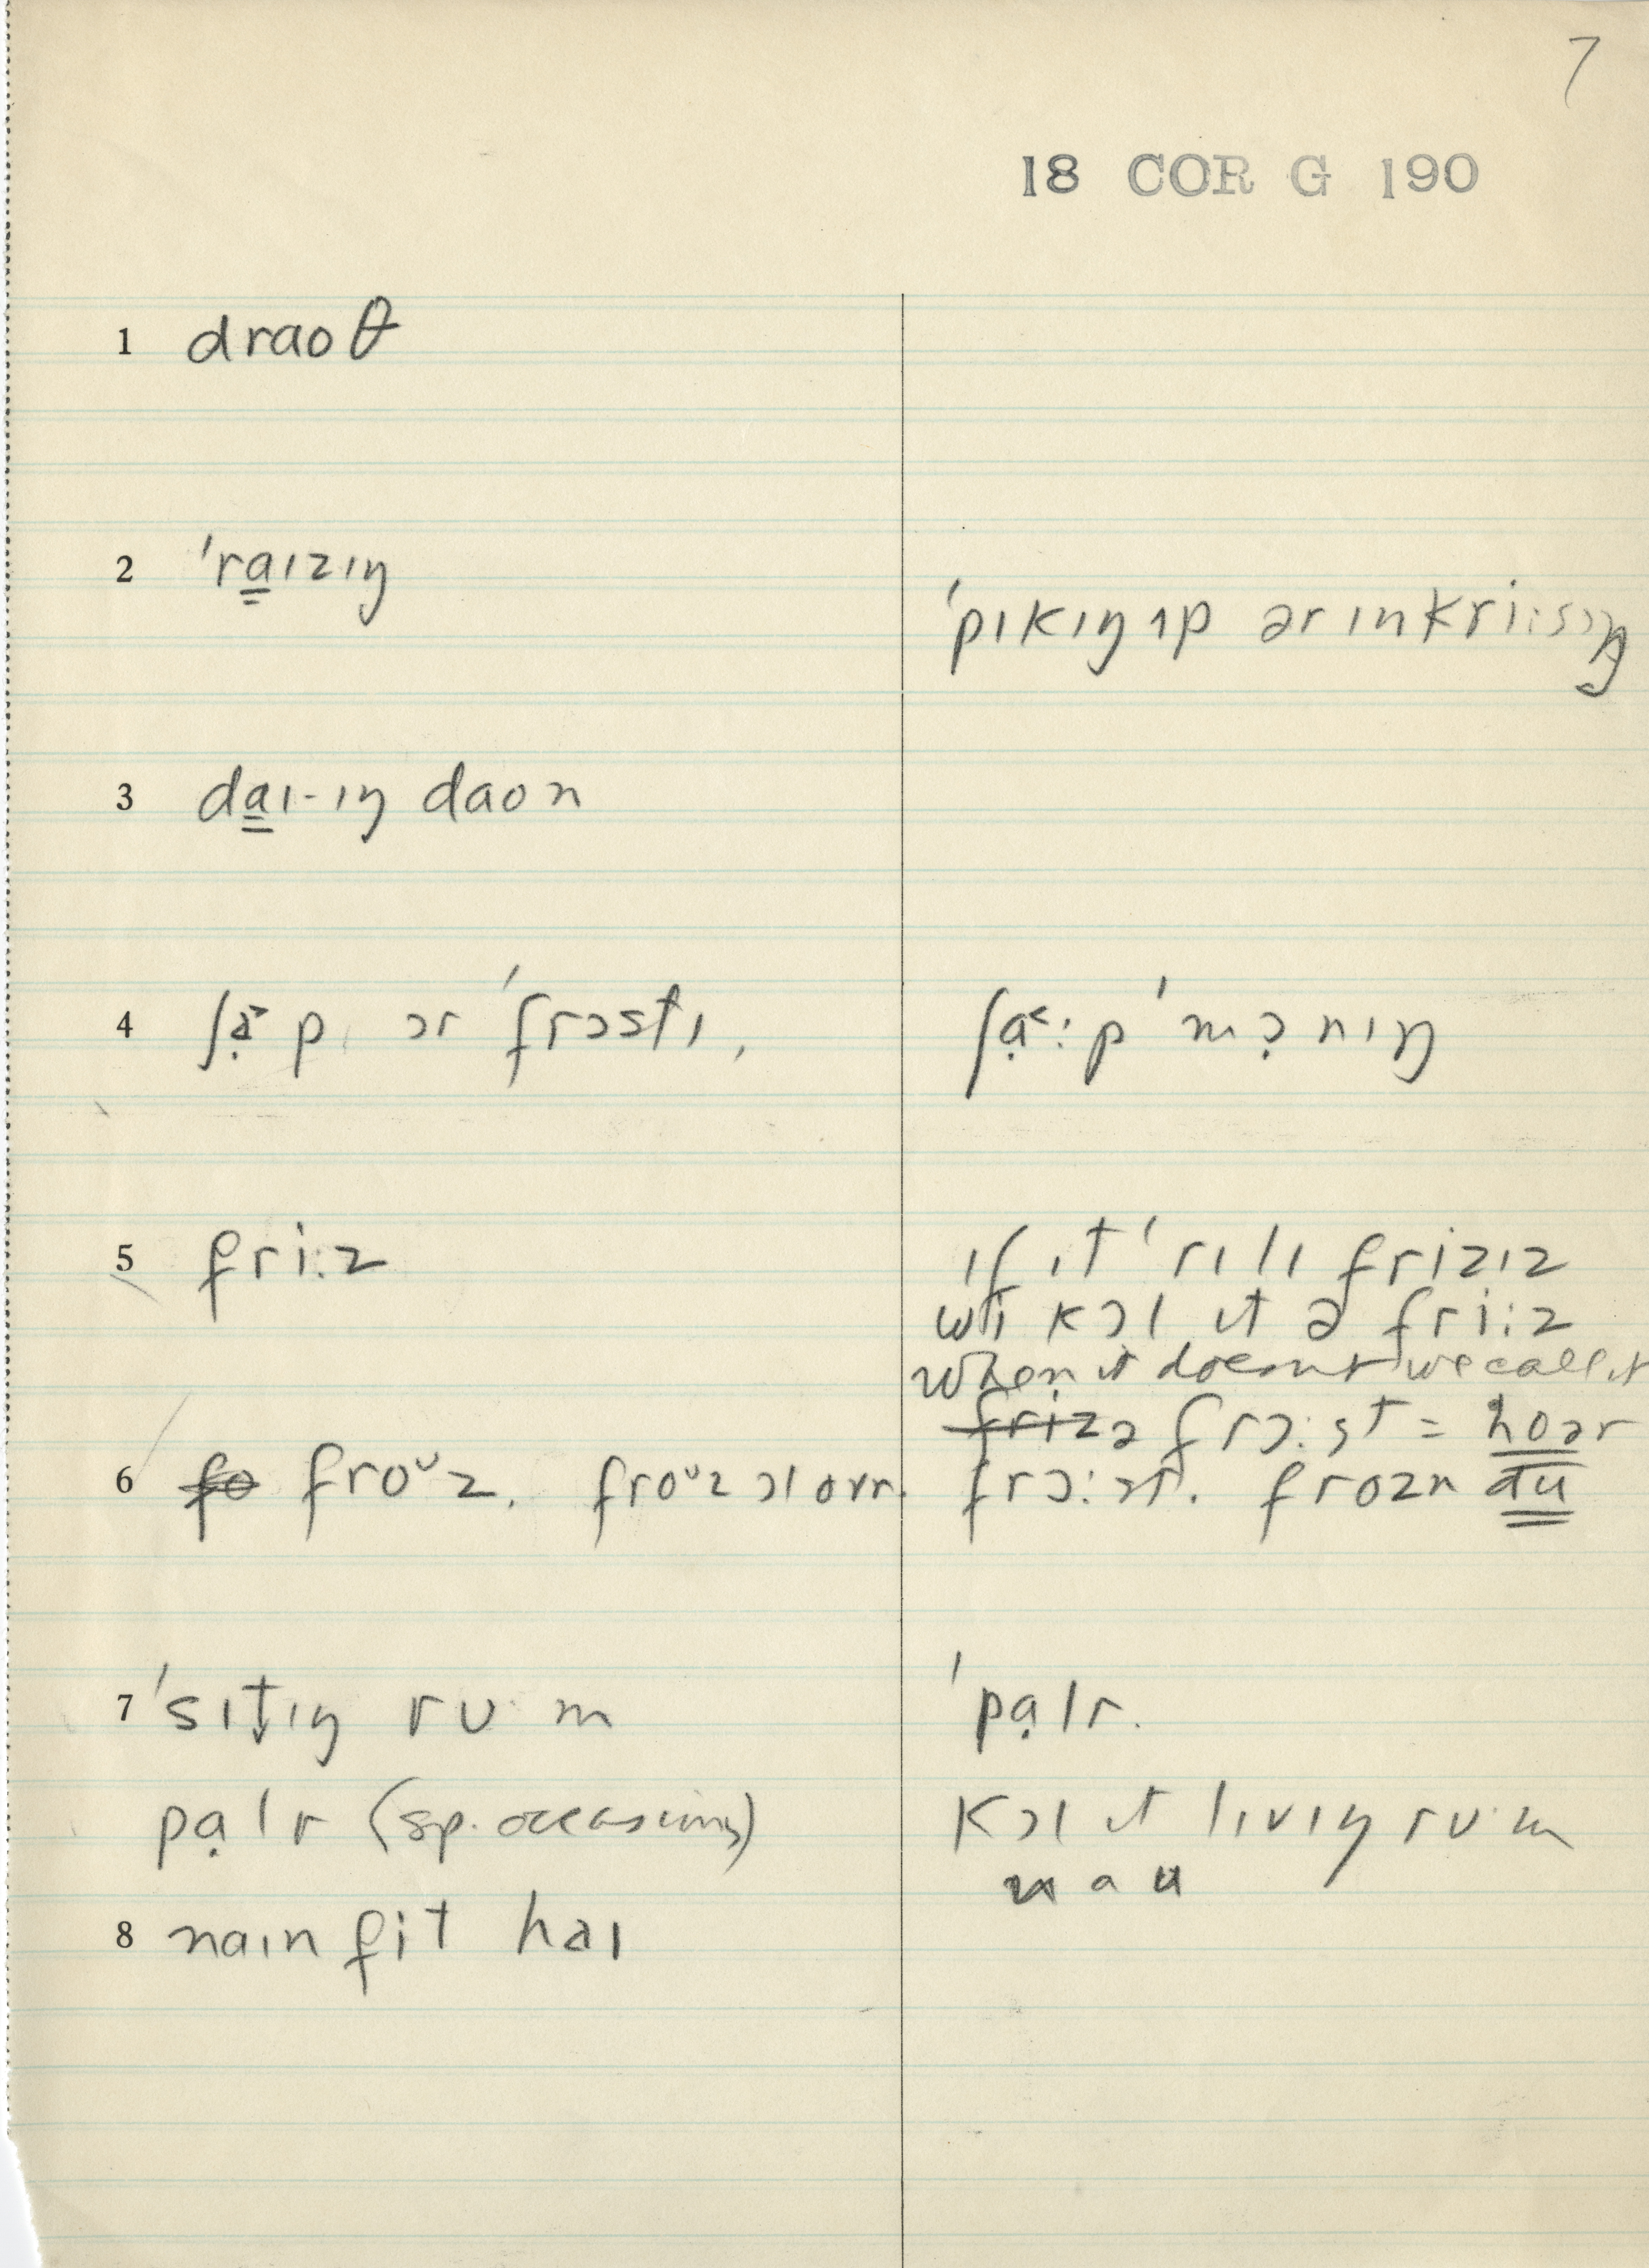 7
18 COR G 190
1 draoθ
2 ˈra̳ɪzɪŋ
ˈpɪkɪŋ ɪp ər ɪnkri:sɪŋ
3 da̳ɪ-ɪŋ daon
4 ʃạ˃p ɔr ˈfrɔstɪ,
ʃạ˂:p ˈmɔ̣nɪŋ
5 fri:z
ɪf ɪt ˈrɪlɪ frizɪz
wi kɔl ɪt ə fri:z
When it doesnt we call it
~~friz~~ ə frɔ:st = hoər
6 ~~fo~~ froᶷz. froᶷz ɔl ovr.
frɔ:st. frozn du
7 ˈsɪt̬ɪŋ rʊm
ˈpạlr.
pạlr (sp. occasions)
kɔl ɪt lɪvɪŋ rʊ·m
nau
8 naɪn fit haɪ